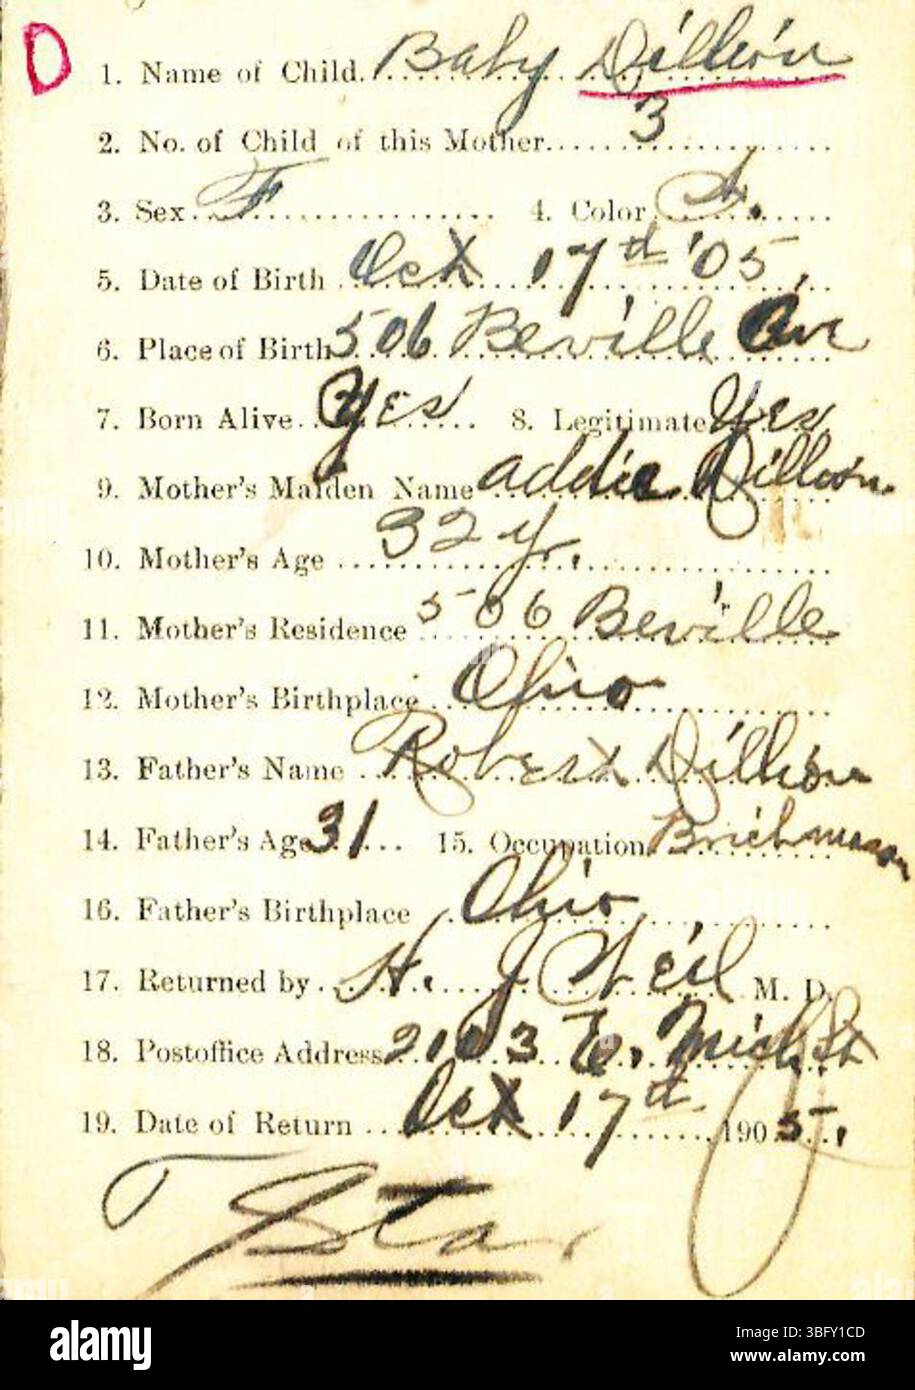 D
1. Name of Child Baby Dillon
2. No. of Child of this Mother 3
3. Sex F 4. Color
5. Date of Birth Oct 17th '05.
6. Place of Birth 506 Beville Ave
7. Born Alive Yes 8. Legitimate Yes
9. Mother's Maiden Name Addie Dillon
10. Mother's Age 32 y.
11. Mother's Residence 506 Beville
12. Mother's Birthplace Ohio
13. Father's Name Robert Dillon
14. Father's Age 31 15. Occupation Brickmason
16. Father's Birthplace Ohio
17. Returned by H. J. Weil M. D.
18. Postoffice Address 2103 E. Mich St
19. Date of Return Oct 17th 1905.
alamy
Image ID: 3BFY1CD
www.alamy.com